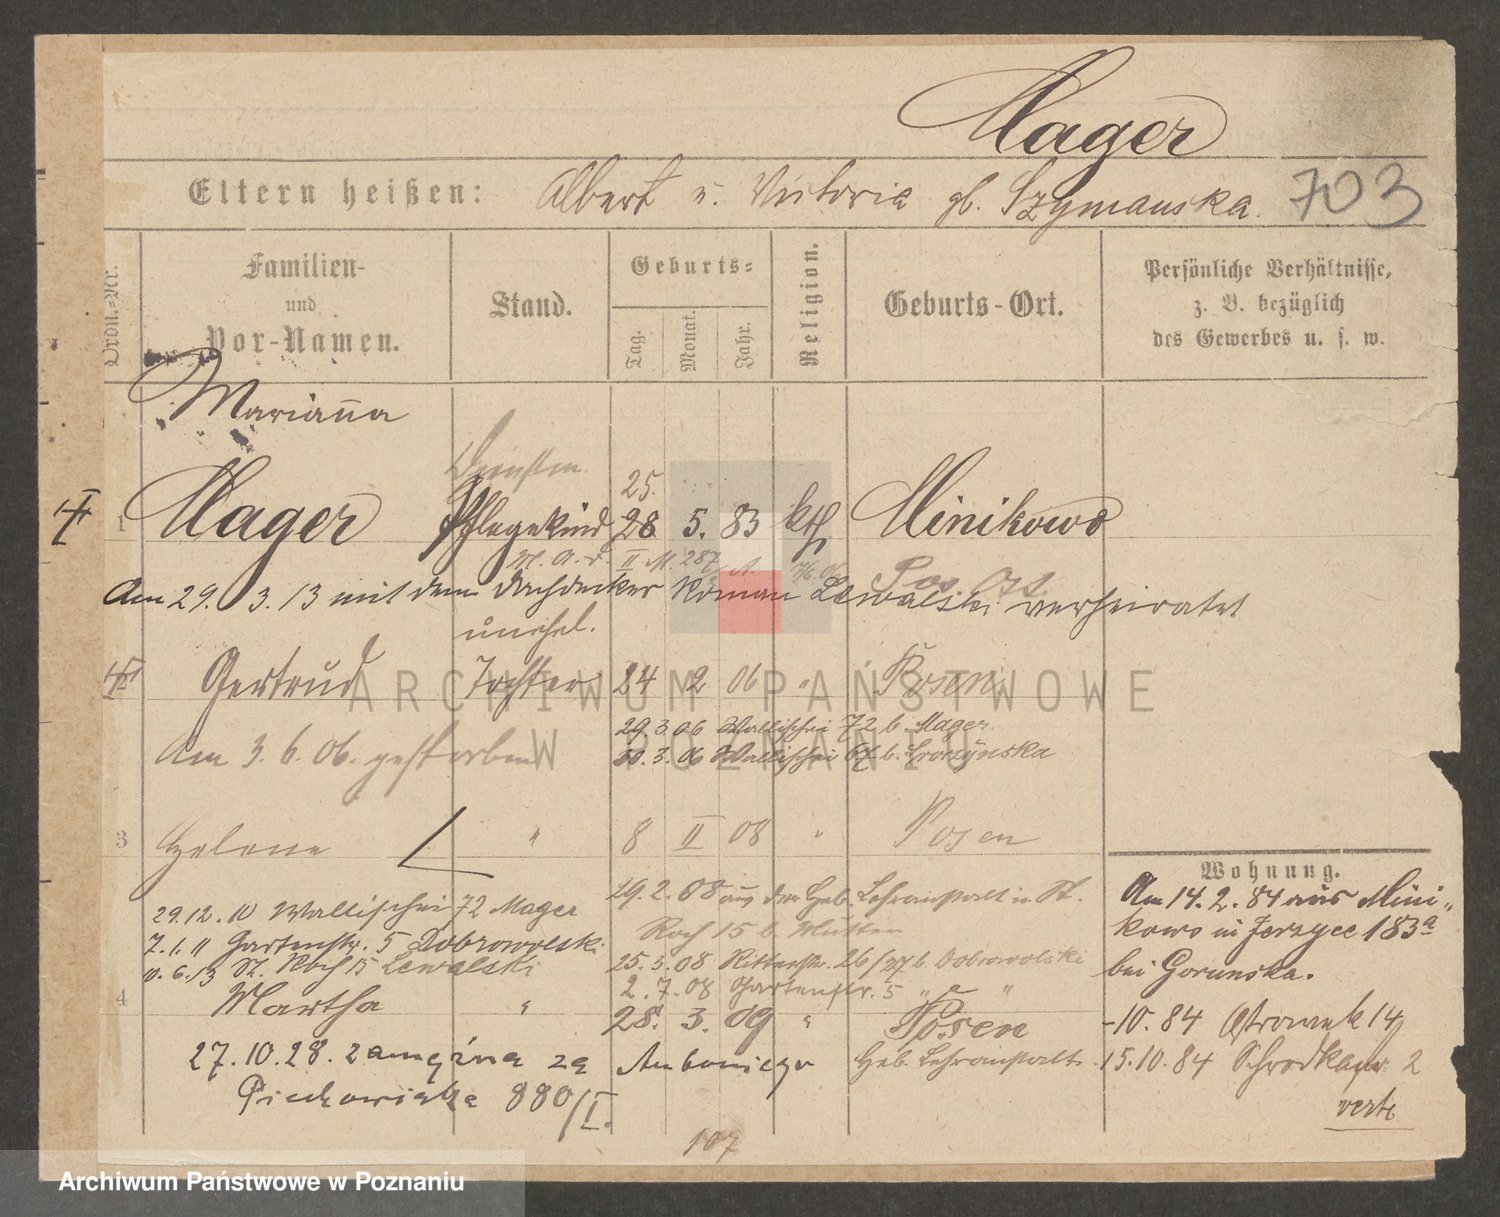 Mager
Eltern heißen: Albert u. Victoria gb. Szymanska.
703
Ordn.-Nr.
Familien-
und
Vor-Namen.
Stand.
Geburts-
Tag.
Monat.
Jahr.
Religion.
Geburts-Ort.
Persönliche Verhältnisse,
z. B. bezüglich
des Gewerbes u. s. w.
Marianna
Dienstm.
25.
1 Mager Pflegekind 28 5. 83 kth Minikowo
II M. 287
Pos. Ost
Am 29. 3. 13 mit dem Dachdecker Roman Lewalski verheiratet
unehel.
Gertrud Tochter 24 2 06 " Posen
29.3.06 Wallischei 72 b. Mager
Am 3. 6. 06. gestorben
30.3.06 Wallischei 67 b.
3 Helene " 8 II 08 " Posen
29.2.08 aus der Heb. Lehranstalt in St.
Roch 15 b. Mutter
29.12.10 Wallischei 72 Mager
7.1.11 Gartenstr. 5 Dobrowolski
25.3.08 Ritterstr. 26/27 b. Dobrowolski
6.13 St. Roch 15 Lewalski
2.7.08 Gartenstr. 5 " "
4 Martha " 28. 3. 09 " Posen
Heb. Lehranstalt
27.10.28. zamężna za Antoniego
880/I.
Wohnung.
Am 14.2.84 aus Mini-
kowo in Jerzyce 183a
bei Gorunska.
-10. 84 Ostrowek 14
15.10.84 Schrodkaer 2
verte
107
ARCHIWUM PAŃSTWOWE
W POZNANIU
Archiwum Państwowe w Poznaniu